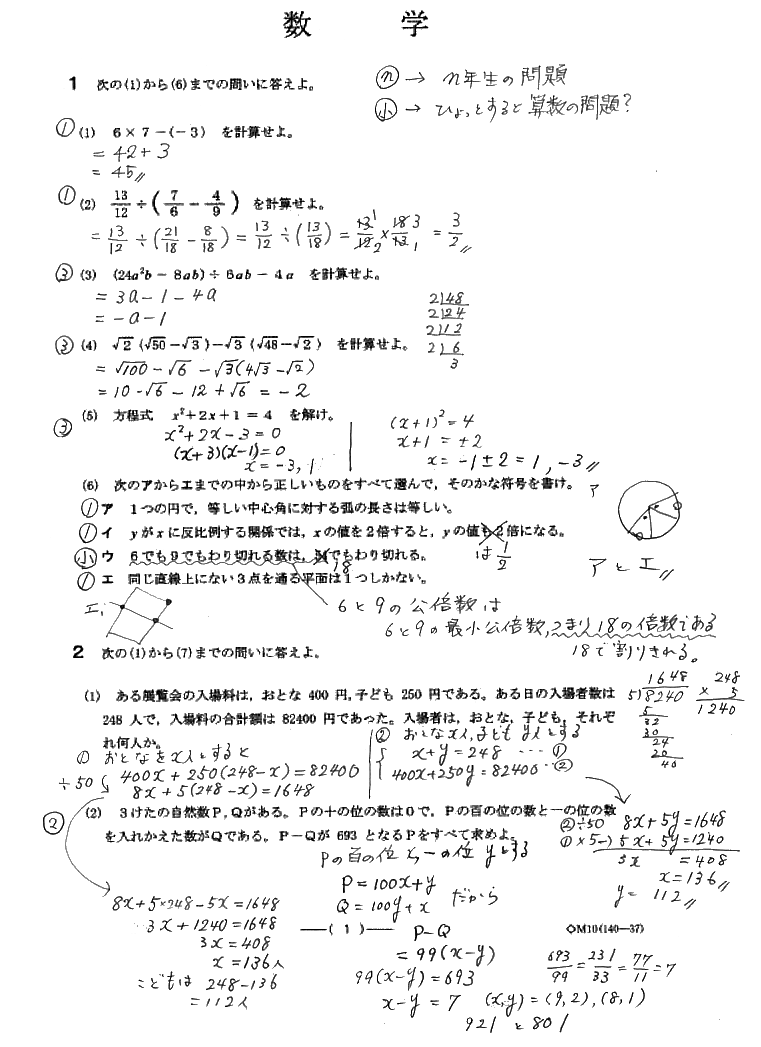 数 学
1 次の(1)から(6)までの問いに答えよ。
ⓝ → n年生の問題
㊙小 → ひょっとすると算数の問題?
① (1) 6×7-(-3) を計算せよ。
= 42+3
= 45〃
① (2) 13/12 ÷ (7/6 - 4/9) を計算せよ。
= 13/12 ÷ (21/18 - 8/18) = 13/12 ÷ (13/18) = 13/12 × 18/13 = 3/2〃
③ (3) (24a²b - 8ab) ÷ 8ab - 4a を計算せよ。
= 3a-1-4a
= -a-1
2)48
2)24
2)12
2)6
3
③ (4) √2 (√50-√3)-√3 (√48-√2) を計算せよ。
= √100 - √6 - √3(4√3-√2)
= 10-√6 - 12+√6 = -2
③ (5) 方程式 x²+2x+1 = 4 を解け。
x²+2x-3=0
(x+3)(x-1)=0
x=-3, 1
(x+1)²=4
x+1 = ±2
x = -1±2 = 1, -3〃
(6) 次のアからエまでの中から正しいものをすべて選んで，そのかな符号を書け。 ア
① ア 1つの円で，等しい中心角に対する弧の長さは等しい。
① イ yがxに反比例する関係では，xの値を2倍すると，yの値も2倍になる。
は1/2
小 ウ 6でも9でもわり切れる数は，54でもわり切れる。
18
① エ 同じ直線上にない3点を通る平面は1つしかない。
アとエ〃
エ,
6と9の公倍数は
6と9の最小公倍数,つまり18の倍数である
18で割りきれる。
2 次の(1)から(7)までの問いに答えよ。
(1) ある展覧会の入場料は，おとな 400 円，子ども 250 円である。ある日の入場者数は
248 人で，入場料の合計額は 82400 円であった。入場者は，おとな，子ども，それぞ
れ何人か。
1648
5)8240
5
32
30
24
20
40
248
× 5
1240
① おとなをx人とすると
÷50 400x+250(248-x)=82400
8x+5(248-x)=1648
② おとなx人,子どもy人とする
x+y=248 … ①
400x+250y=82400 … ②
② (2) 3けたの自然数P，Qがある。Pの十の位の数は0で，Pの百の位の数と一の位の数
を入れかえた数がQである。P-Qが 693 となるPをすべて求めよ。
②÷50 8x+5y=1648
①×5-) 5x+5y=1240
3x =408
x=136〃
y= 112〃
Pの百の位x,一の位yとする
P=100x+y
Q=100y+x だから
P-Q
= 99(x-y)
99(x-y)=693
x-y = 7 (x,y)=(9,2),(8,1)
921と801
693/99 = 231/33 = 77/11 = 7
8x+5×248-5x=1648
3x+1240=1648
3x=408
x=136人
こどもは 248-136
=112人
——( 1 )——
◇M10(140—37)